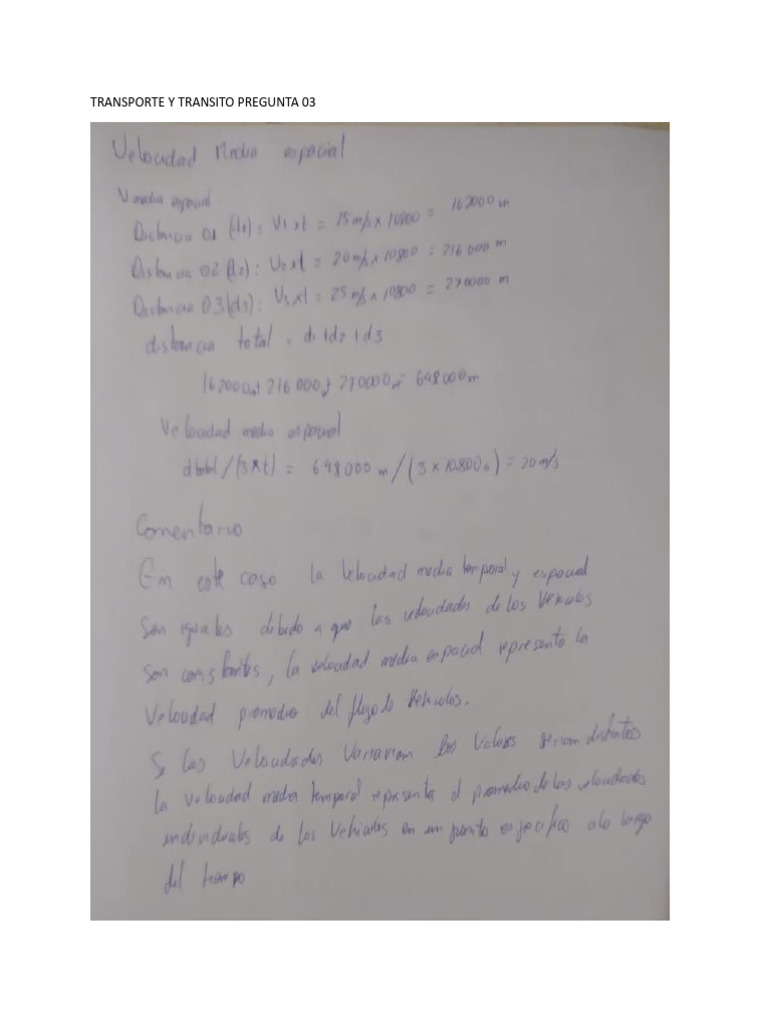 TRANSPORTE Y TRANSITO PREGUNTA 03
Velocidad Media espacial
V media espacial
Distancia 01 (d1): V1 xt = 15 m/s x 10800 = 162000 m
Distancia 02 (d2): V2 xt = 20 m/s x 10800 = 216 000 m
Distancia 03 (d3): V3 xt = 25 m/s x 10800 = 270000 m
distancia total = d1+d2+d3
162000m+ 216 000m+ 270000m= 648000m
Velocidad media espacial
dtotal/(3xt) = 648000 m/(3 x 10800s) = 20 m/s
Comentario
En este caso la velocidad media temporal y espacial
son iguales debido a que las velocidades de los vehiculos
son constantes, la velocidad media espacial representa la
Velocidad promedio del flujo de vehiculos.
Si las Velocidades Variaran los valores serian distintos
la velocidad media temporal representa el promedio de las velocidades
individuales de los Vehiculos en un punto especifico a lo largo
del tiempo